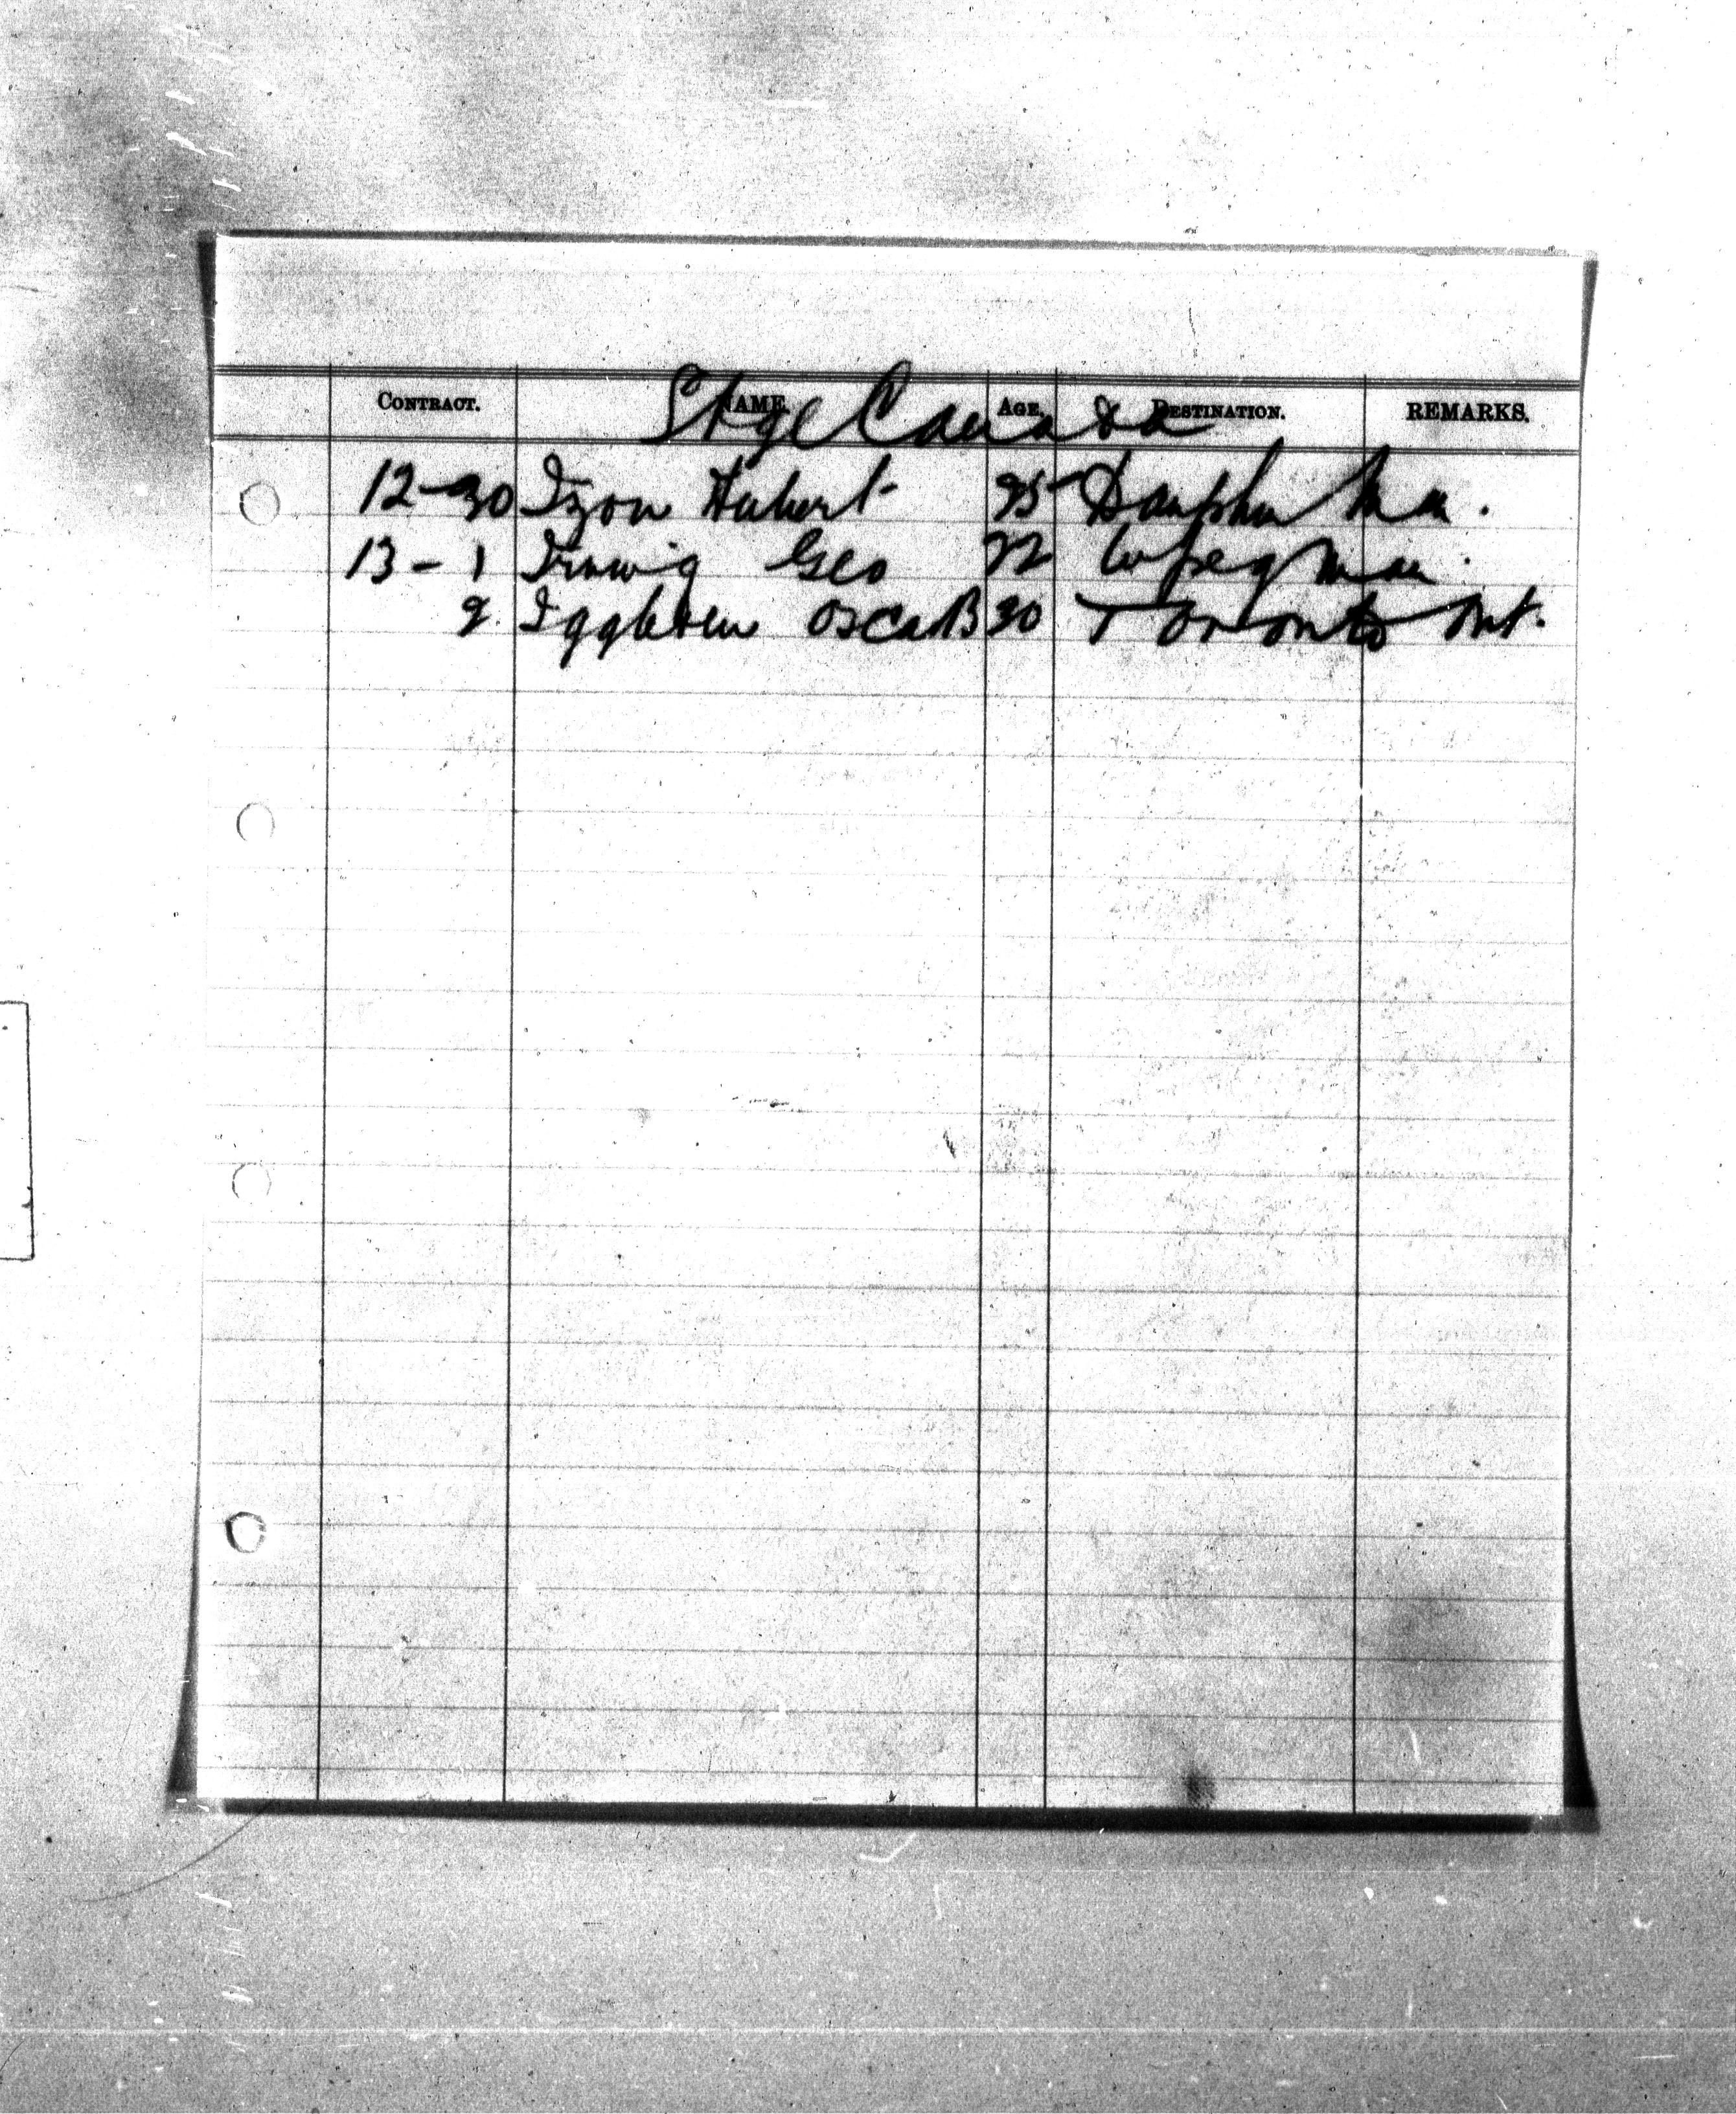 CONTRACT. NAME. AGE. DESTINATION. REMARKS.
Stge Canada
12-30 Izon Hubert 25 Dauphin Man.
13-1 Geo 22 Wpeg Man.
2. Oscar B 30 Toronto Ont.